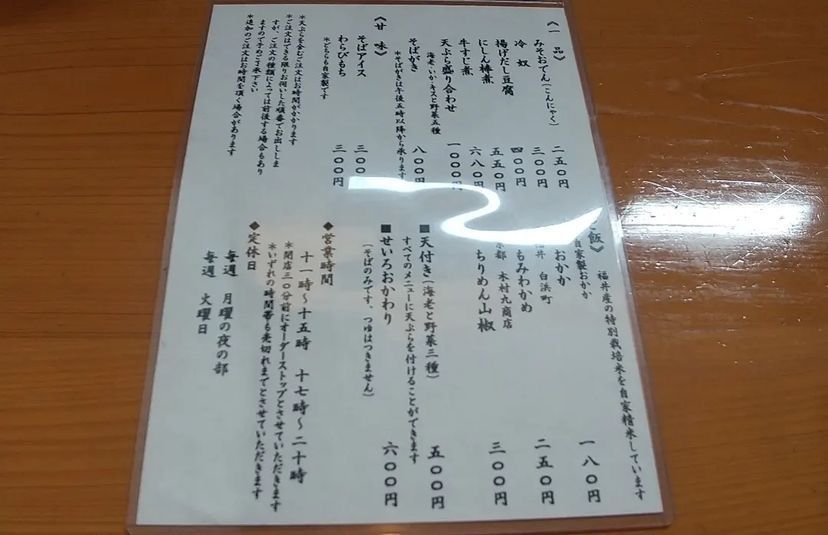 《一品》
みそおでん(こんにゃく) 二五〇円
冷奴 三〇〇円
揚げだし豆腐 四〇〇円
にしん棒煮 五五〇円
牛すじ煮 六八〇円
天ぷら盛り合わせ 一〇〇〇円
海老・いか・キスと野菜五種
そばがき 八〇〇円
＊そばがきは午後五時以降から承ります
《甘味》
そばアイス 三〇〇円
わらびもち 三〇〇円
＊どちらも自家製です
＊天ぷらを含むご注文はお時間がかかります
＊ご注文はできる限りお伺いした順番でお出ししま
すが、ご注文の種類によっては前後する場合もあり
ますので予めご了承下さい
＊追加のご注文はお時間を頂く場合があります
福井産の特別栽培米を自家精米しています
飯》
一八〇円
自家製おかか
おかか 二五〇円
井 白浜町
もみわかめ
都 木村九商店
ちりめん山椒 三〇〇円
■天付き(海老と野菜三種) 五〇〇円
すべてのメニューに天ぷらを付けることができます
■せいろおかわり 六〇〇円
(そばのみです、つゆはつきません)
◆営業時間
十一時～十五時 十七時～二十時
＊閉店三〇分前にオーダーストップとさせていただきます
＊いずれの時間帯も売切れまでとさせていただきます
◆定休日
毎週 月曜の夜の部
毎週 火曜日